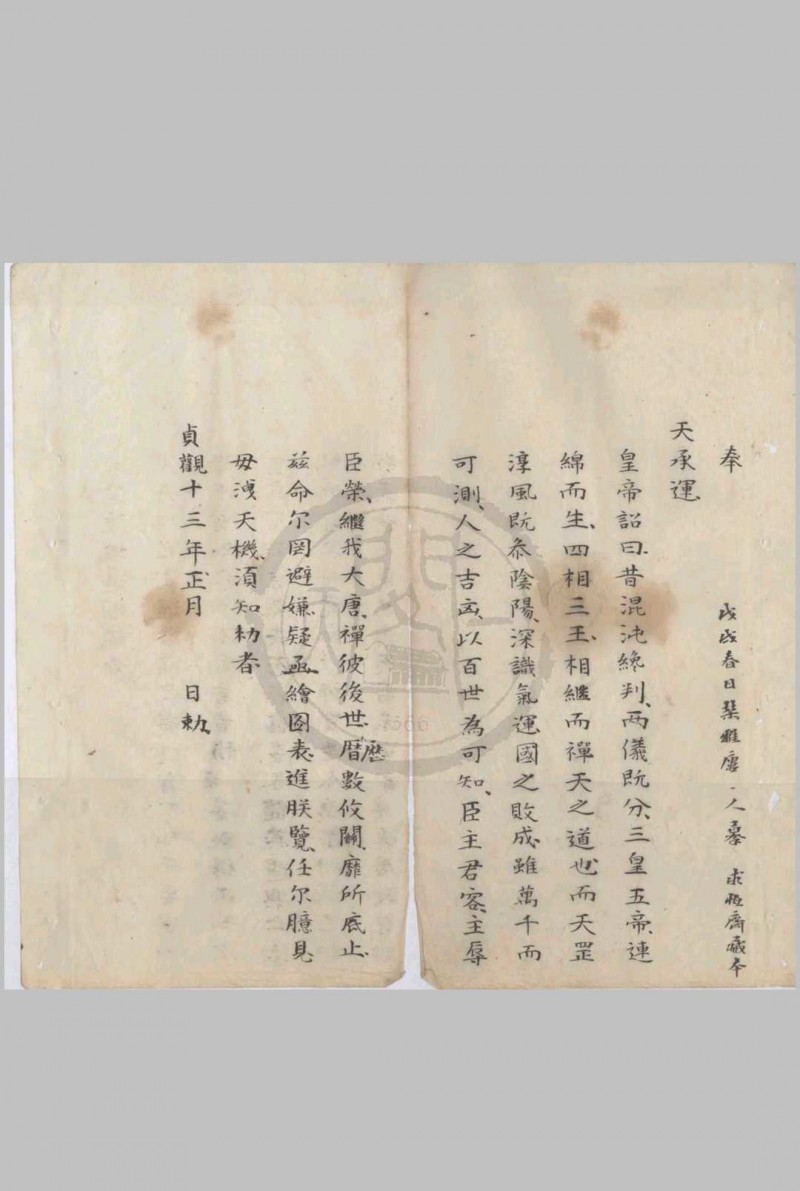 奉
戊戌春日葉雅廬人摹 求恆齋藏本
天承運
皇帝詔曰昔混沌纔判、两儀既分、三皇五帝、連
綿而生、四相三王、相繼而禪天之道也、而天罡
淳風既叅陰陽、深識氣運國之敗成、雖萬千而
可測、人之吉凶、以百世為可知、臣主君客、主辱
臣榮、繼我大唐、禪彼後世、曆歷數攸關、靡所底止、
茲命尔罔避嫌疑、亟繪图表進朕覽、任尔臆見
毋洩天機、須知勅者
貞觀十三年正月 日勅